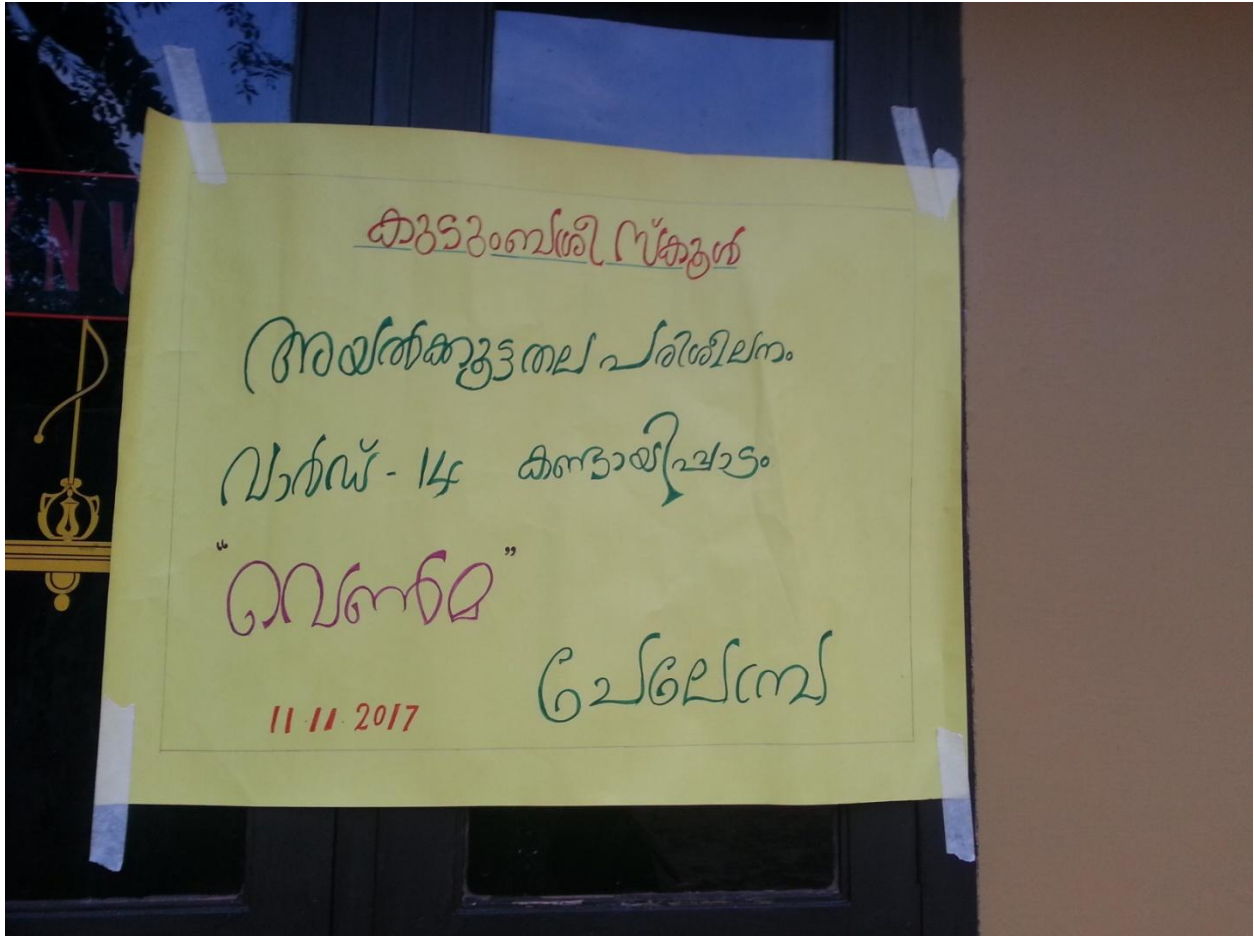 കുടുംബശ്രീ സ്കൂൾ
അയൽക്കൂട്ടതല പരിശീലനം
വാർഡ് - 14 കണ്ടായിപ്പാടം
“വെൺമ”
ചേലേമ്പ്ര
11.11.2017